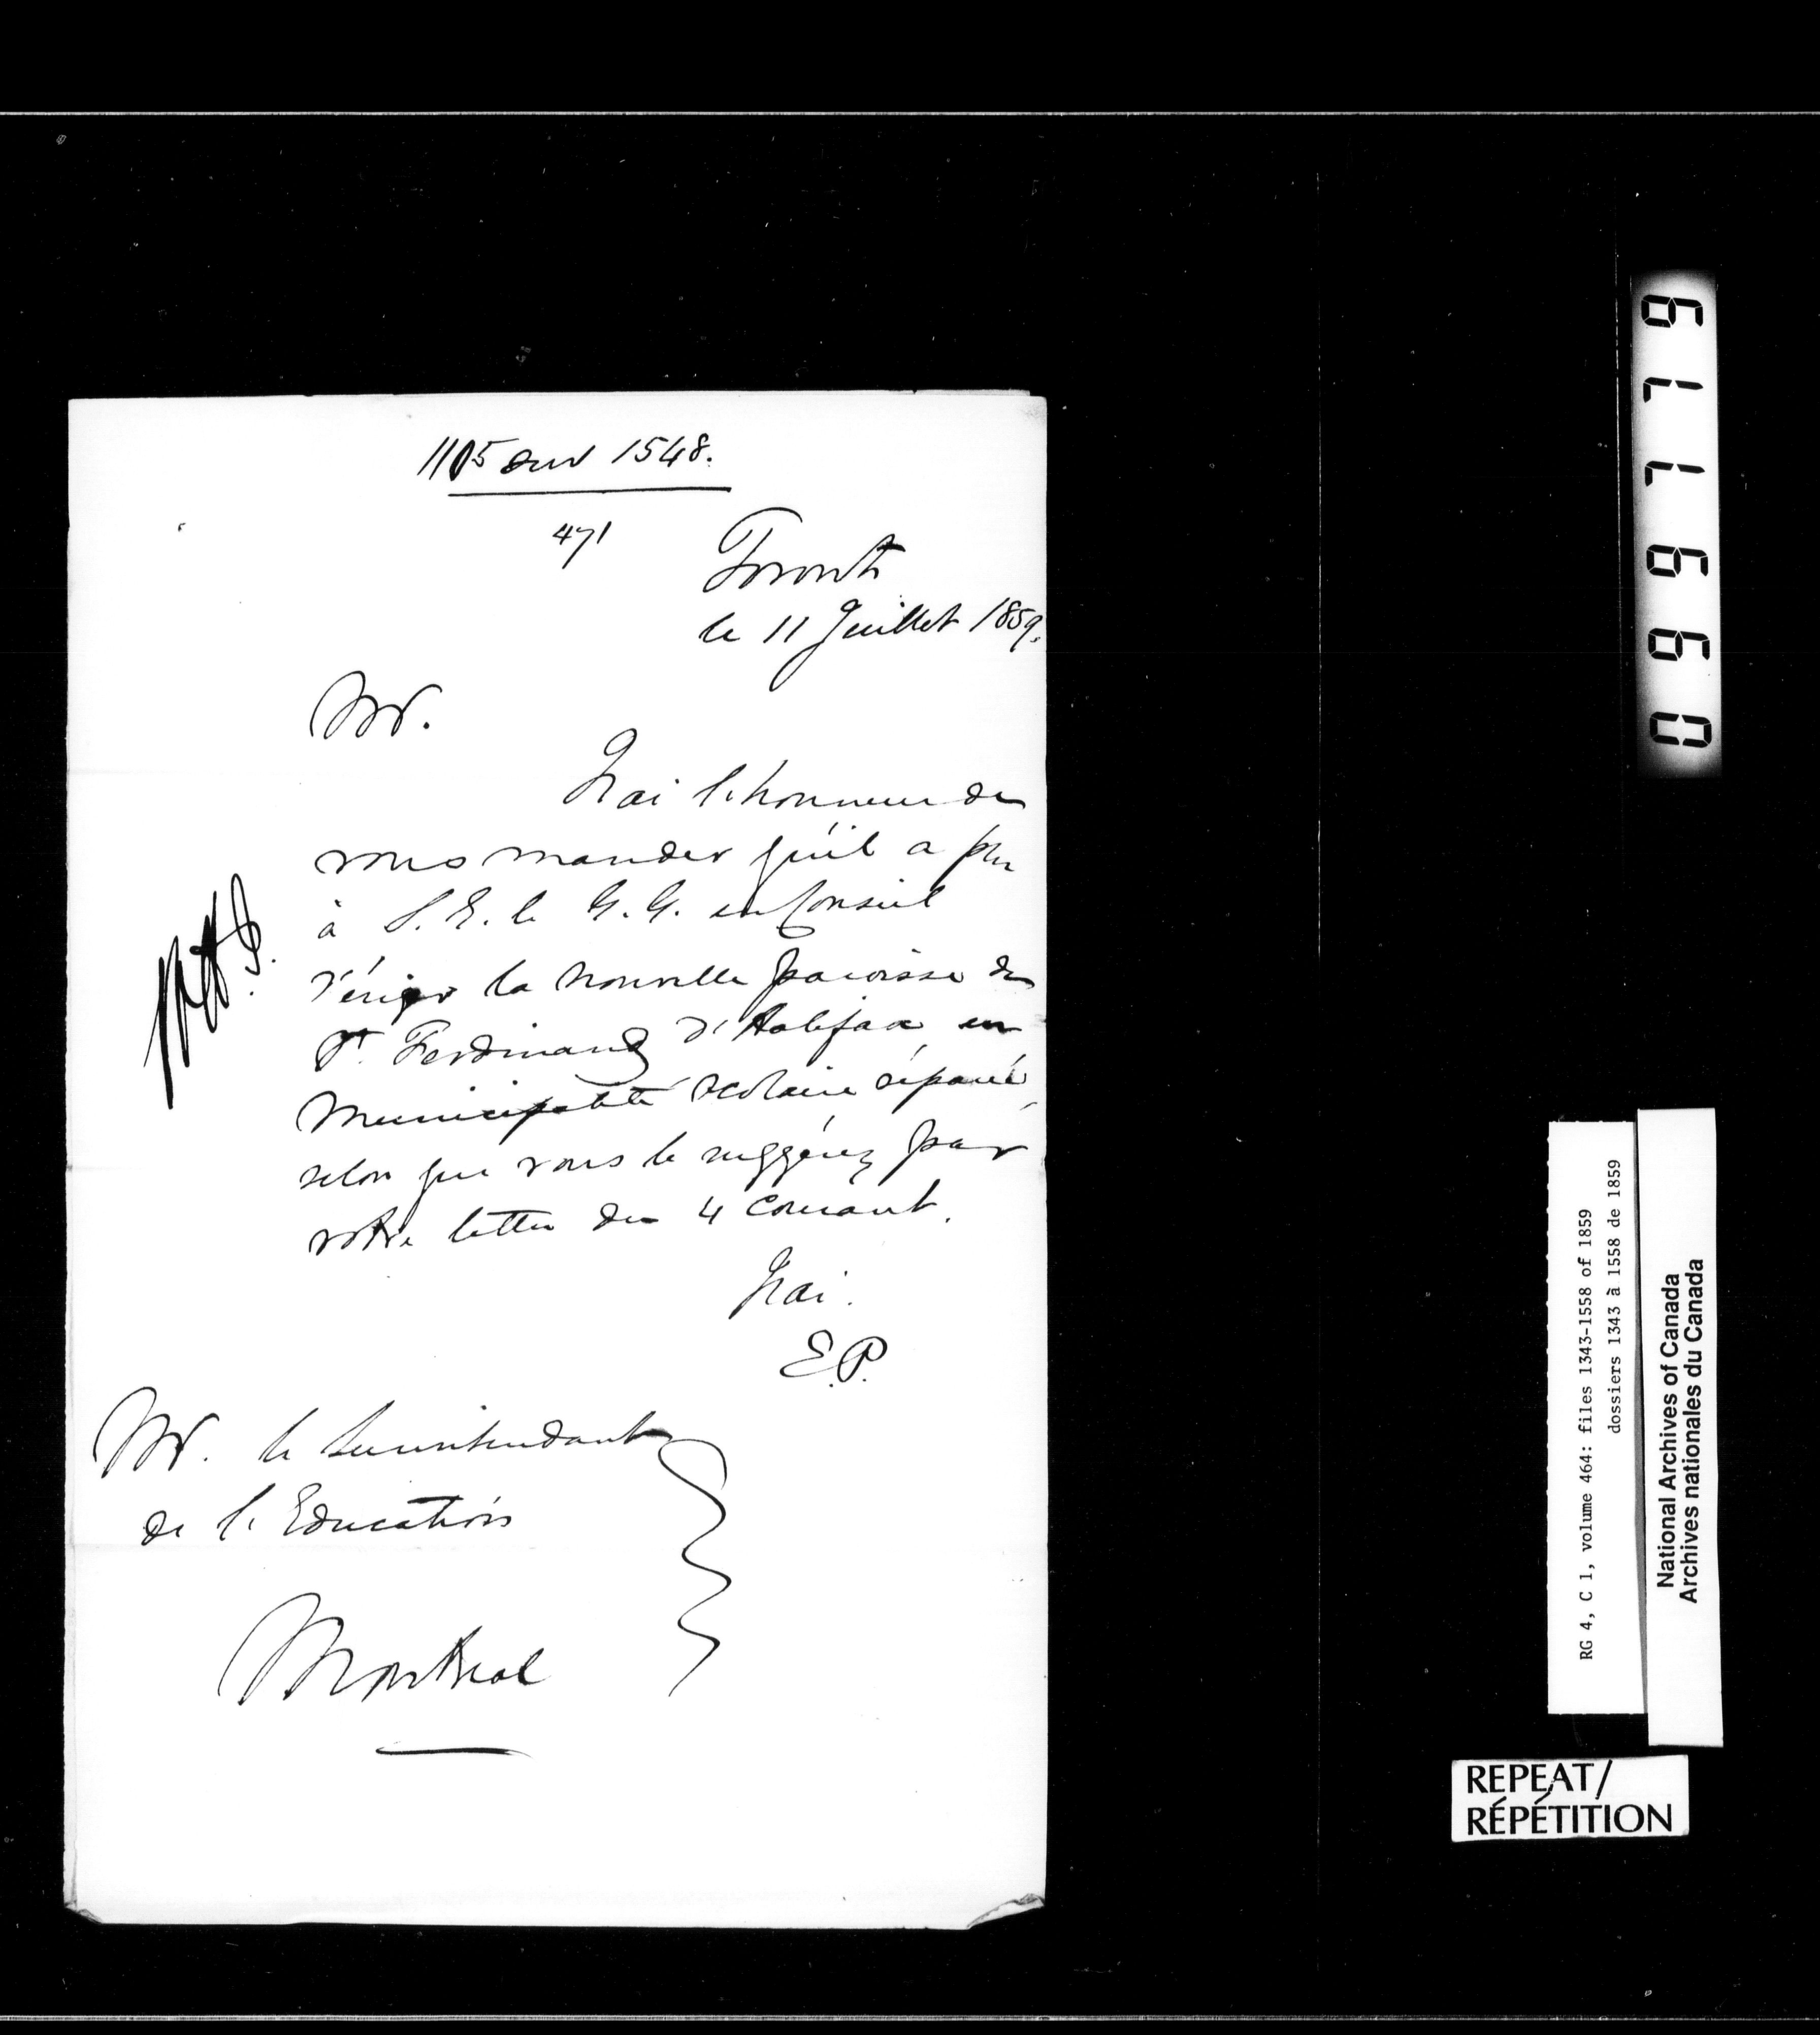 1105 sur 1548.
471
Toronto
le 11 Juillet 1859.
Mr.
J'ai l'honneur de
vous mander qu'il a plu
à S. E. le G. G. en Conseil
d'ériger la nouvelle paroisse de
St. Ferdinand d'Halifax en
Municipalité scolaire séparée,
selon que vous le suggérez par
votre lettre du 4 courant.
J'ai.
E.P.
Mr. le Surintendant
de l'Education
Montreal
099119
RG 4, C 1, volume 464: files 1343-1558 of 1859
dossiers 1343 à 1558 de 1859
National Archives of Canada
Archives nationales du Canada
REPEAT/
RÉPÉTITION